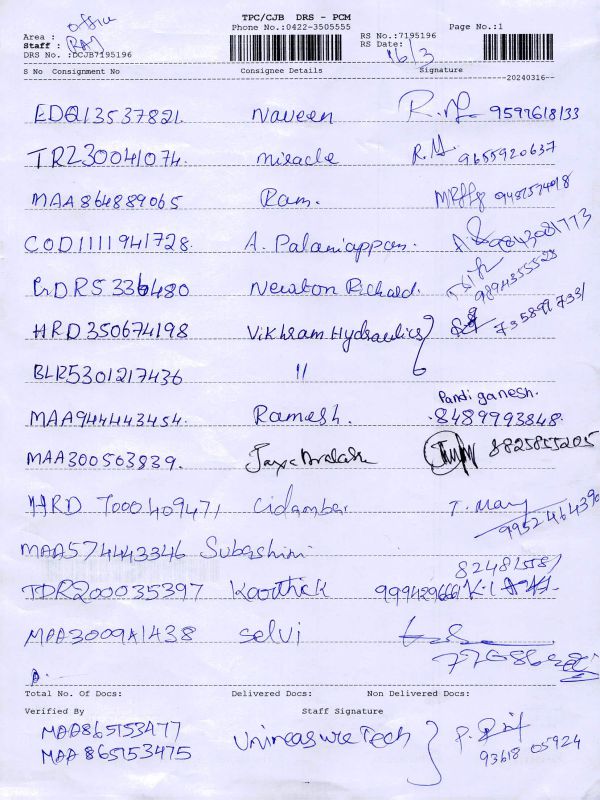 TPC/CJB DRS - PCM
office
Phone No.:0422-3505555 Page No.:1
Area :
Staff : RAJ RS No.:7195196
DRS No. :DCJB7195196 RS Date: 16/3
S No Consignment No Consignee Details Signature
20240316
EDQ13537821. Naveen 9597618133
TRZ30041074. miracle R.M. 9655920637
MAA864889065 Ram.
COD1111941728. A. Palaniappan. 9843081773
DRS336480 Newton Richard. 9894355523
HRD350674198 Vikhram Hydraulics
BLR5301217436 "
Pandi ganesh.
MAA944443454. Ramesh. 8489993848.
MAA300503839.
HRD 7000409471 Cidambar T. Mary
MAA574443346 Subashini
TDR200035397 Karthick
MAA3009A1438 Selvi
Total No. Of Docs: Delivered Docs: Non Delivered Docs:
Verified By Staff Signature
MAA865153477
Unimeasure Tech
MAA865153475 93618 05924